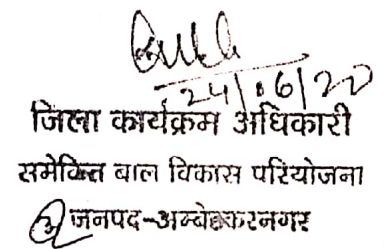 24/06/20
जिला कार्यक्रम अधिकारी
समेकित बाल विकास परियोजना
जनपद-अम्बेडकरनगर